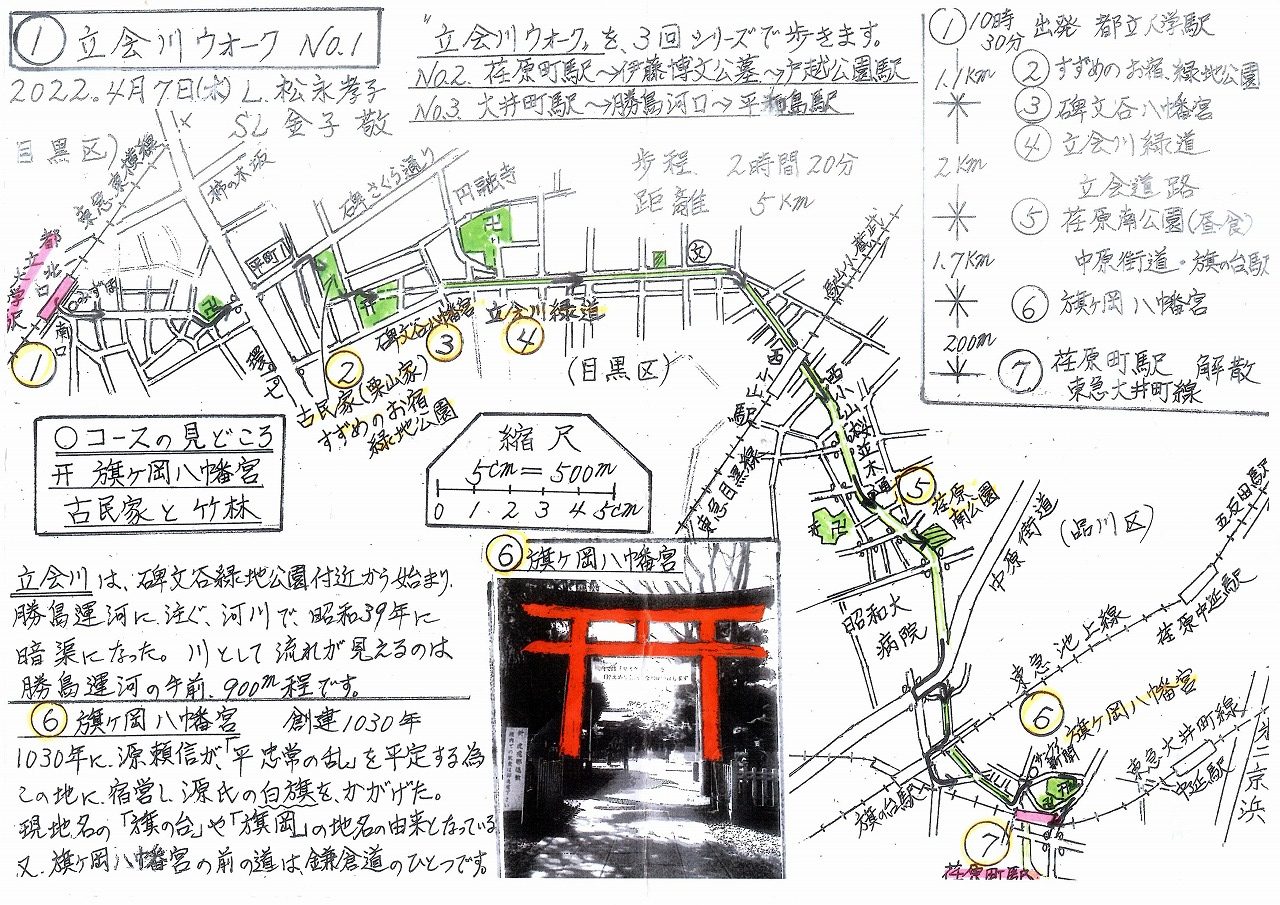 ① 立会川ウオーク No.1
2022.4月7日(木) L.松永孝子
SL 金子 敬
"立会川ウオーク"を、3回シリーズで歩きます。
No.2. 荏原町駅→伊藤博文公墓→戸越公園駅
No.3. 大井町駅→勝島河口→平和島駅
歩程、2時間20分
距離 5Km
① 10時30分 出発 都立大学駅
1.1Km
② すずめのお宿、緑地公園
③ 碑文谷八幡宮
④ 立会川緑道
2Km
立会道路
⑤ 荏原南公園(昼食)
1.7Km
中原街道・旗の台駅
⑥ 旗ヶ岡八幡宮
200m
⑦ 荏原町駅 解散
東急大井町線
目黒区)
東急東横線
柿の木坂
碑さくら通り
円融寺
平町
文
都立大学駅
北口
みずほ
南口
①
環七
②
古民家(栗山家)
すずめのお宿
緑地公園
碑文谷八幡宮
③
立会川緑道
④
(目黒区)
至武蔵小山駅
西小山駅
東急目黒線
西小山桜並木通
⑤
荏原
南公園
中原街道
(品川区)
五反田駅
昭和大
病院
荏原中延駅
東急池上線
⑥
旗ヶ岡八幡宮
東急大井町線
中延駅
第二京浜
旗の台駅
⑦
荏原町駅
○コースの見どころ
开 旗ヶ岡八幡宮
古民家と竹林
縮尺
5cm=500m
0 1 2 3 4 5cm
立会川は、碑文谷緑地公園付近から始まり、
勝島運河に注ぐ、河川で、昭和39年に
暗渠になった。川として流れが見えるのは
勝島運河の手前、900m程です。
⑥ 旗ヶ岡八幡宮 創建1030年
1030年に、源頼信が、「平忠常の乱」を平定する為
この地に、宿営し、源氏の白旗を、かかげた。
現地名の「旗の台」や「旗岡」の地名の由来となっている
又、旗ヶ岡八幡宮の前の道は、鎌倉道のひとつです。
⑥ 旗ヶ岡八幡宮